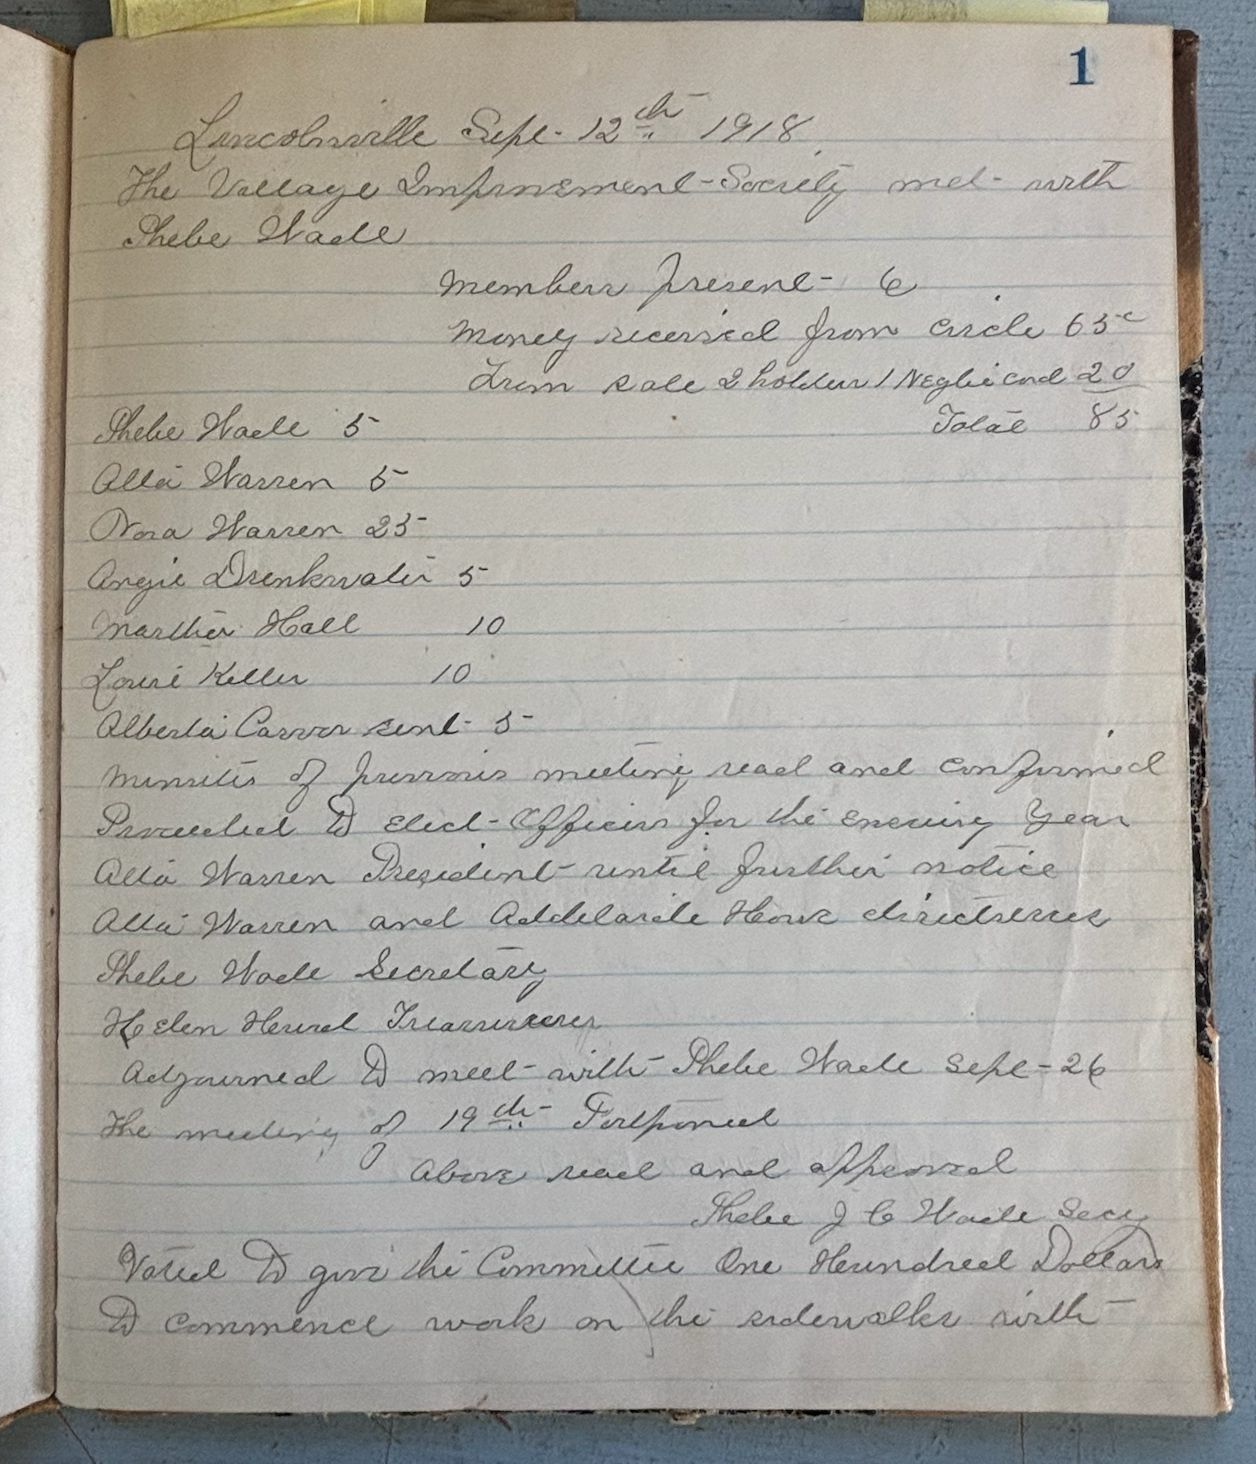 1
Lincolnville Sept- 12th 1918
The Village Improvement-Society met- with
Phebe Wade
Members present- 6
Money received from circle 65c
From sale 2 holders 1 Neglie cord 20
Total 85
Phebe Wade 5
Alla Warren 5
Nora Warren 25
Angie Drinkwater 5
Marther Hall 10
Keller 10
Alberta Carver sent- 5
Minutes of previous meeting read and confirmed
Proceeded to elect- Officers for the ensuing Year
Alla Warren President- until further notice
Alla Warren and Addelaide Howe directresses
Phebe Wade Secretary
Helen Heurd
Adjourned to meet- with Phebe Wade Sept- 26
The meeting of 19th- Postponed
Above read and approved
Phebe J C Wade Secy
Voted to give the Committee One Hundred Dollars
to commence work on the sidewalks with